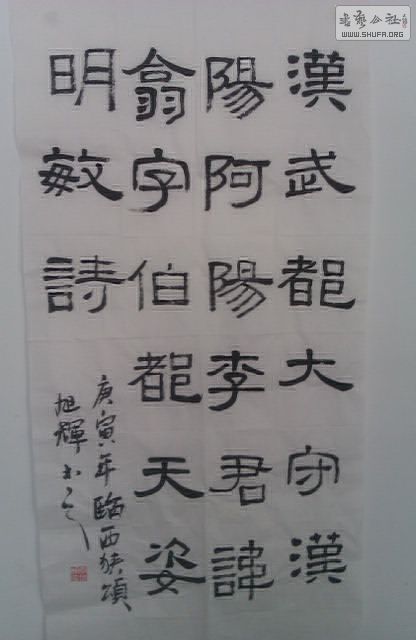 書藝公社
WWW.SHUFA.ORG
漢武都大守漢
陽阿陽李君諱
翕字伯都天姿
明敏詩
庚寅年臨西狹頌
旭輝